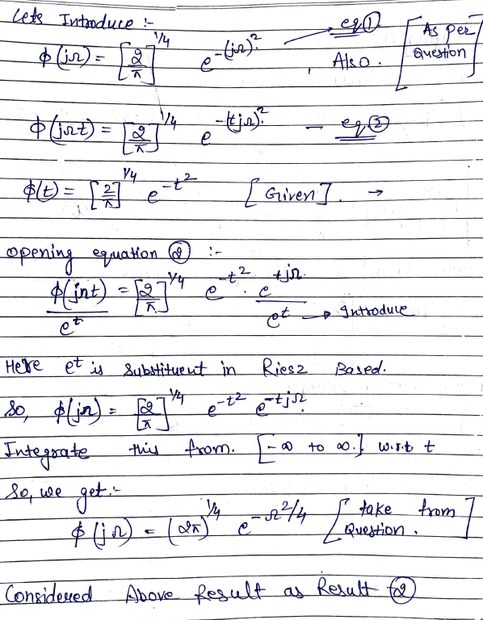 Lets Introduce :-
ϕ(jΩ) = [2/π]^1/4 e^-(jΩ)^2. → eq① , Also. [As per Question]
ϕ(jΩt) = [2/π]^1/4 e^-(tjΩ)^2. — eq②
ϕ(t) = [2/π]^1/4 e^-t^2 [Given]. →
opening equation ② :-
ϕ(jΩt)/e^t = [2/π]^1/4 e^-t^2 . e^-tjΩ./e^t → Introduce
Here e^t is substituent in Riesz Based.
So, ϕ(jΩ) = [2/π]^1/4 e^-t^2 e^-tjΩ.
Integrate this from. [-∞ to ∞.] w.r.t t
So, we get :-
ϕ(jΩ) = (2π)^1/4 e^-Ω^2/4 [take from Question.]
Considered Above Result as Result ②